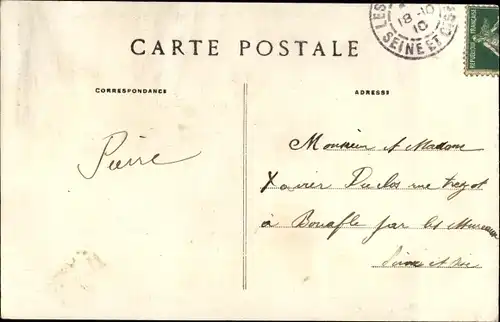 LES
18-10
10
SEINE ET OISE
REPUBLIQUE FRANÇAISE
CARTE POSTALE
CORRESPONDANCE
ADRESSE
Pierre
Monsieur et Madame
Xavier Duclos rue
à Bouafle par les Mureaux
Seine et Oise